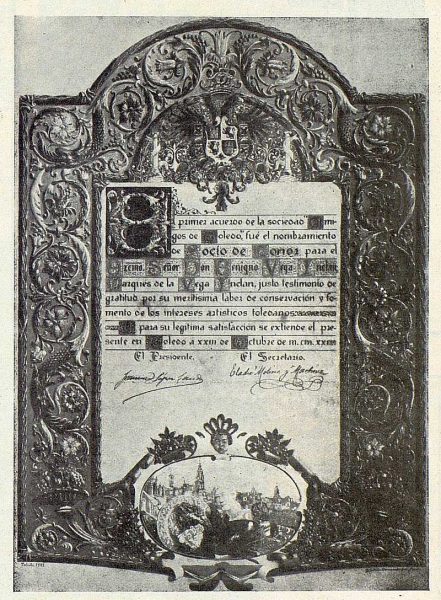 El primer acuerdo de la sociedad "Ami-
gos de Toledo", fué el nombramiento
de Socio de Honor para el
Excmo. Señor Don Benigno Vega Inclan
Marqués de la Vega Inclan, justo testimonio de
gratitud por su meritísima labor de conservación y fo-
mento de los intereses artísticos toledanos
Y para su legítima satisfacción se extiende el pre-
sente en Toledo a xxiii de Octubre de m.cm.xxiii
El Presidente.
El Secretario.
Eladio Molina y Machuca